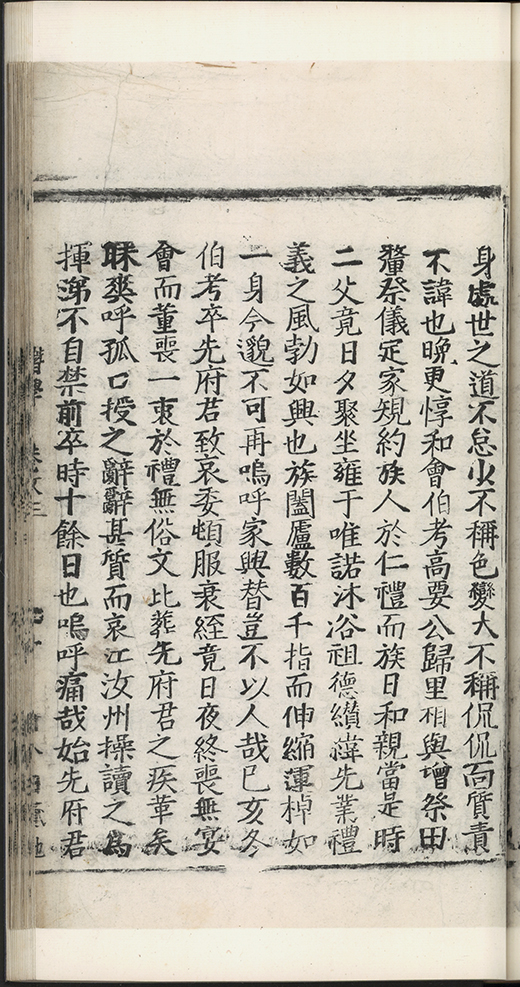 身處世之道不怠少不稱色變大不稱侃侃面質責
不諱也晚更惇和會伯考高要公歸里相與增祭田
釐祭儀定家規約族人於仁禮而族日和親當是時
二父竟日夕聚坐雍于唯諾沐浴祖德纘緯先業禮
義之風勃如興也族闔廬數百千指而伸縮運棹如
一身今邈不可再嗚呼家興替豈不以人哉巳亥冬
伯考卒先府君致哀委頓服衰絰竟日夜終喪無宴
會而董喪一衷於禮無俗文比葬先府君之疾革矣
昧爽呼孤口授之辭辭甚質而哀江汝州操讀之為
揮涕不自禁前卒時十餘日也嗚呼痛哉始先府君